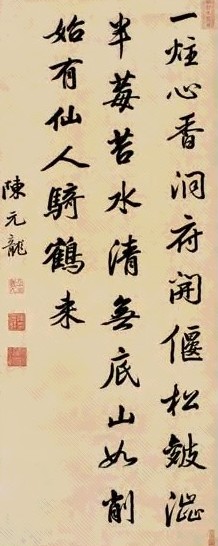 一炷心香洞府開偃松皴澁
半莓苔水清無底山如削
始有仙人騎鶴来
陳元龍